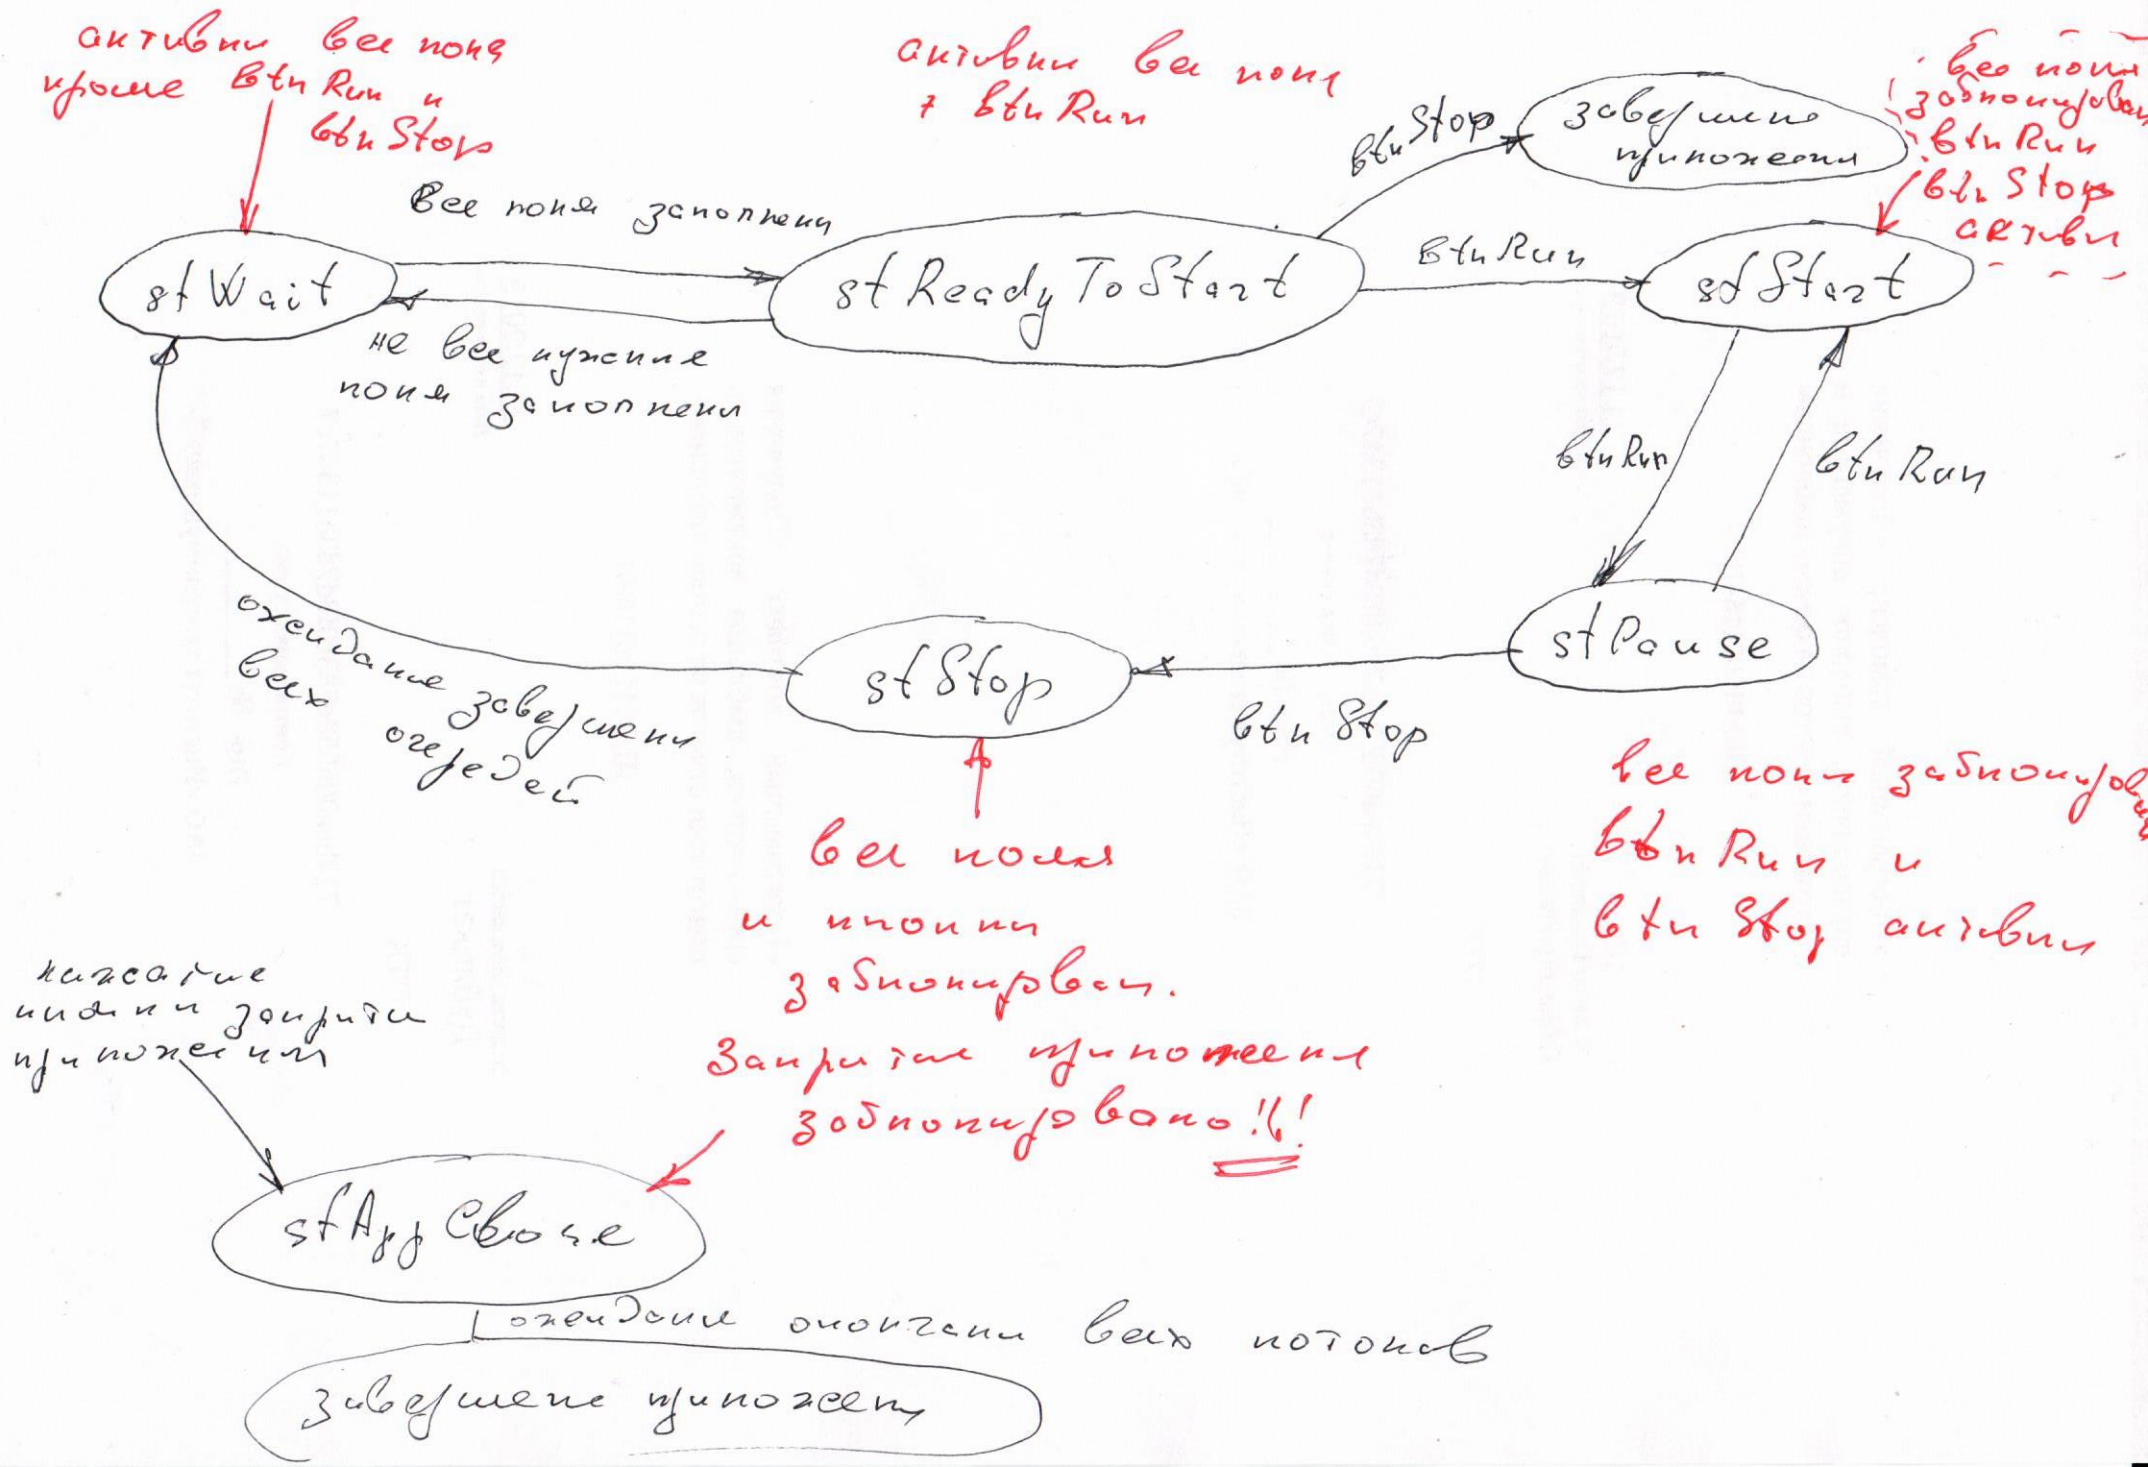 активны все поля
кроме btnRun и
btnStop
активны все поля
+ btnRun
все поля
заблокирован
btnRun
btn Stop
активны
btnStop
завершение
приложения
все поля заполнены
btnRun
stWait
stReadyToStart
stStart
не все нужные
поля заполнены
btnRun
btnRun
stPause
stStop
btnStop
ожидание завершени
всех очередей
все поля
и кнопки
заблокирован.
Закрытие приложения
заблокировано!!!
все поля заблокирован
btnRun и
btn Stop активны
нажатие
кнопки закрыти
приложения
stAppClose
ожидание окончани всех потоков
завершение приложен